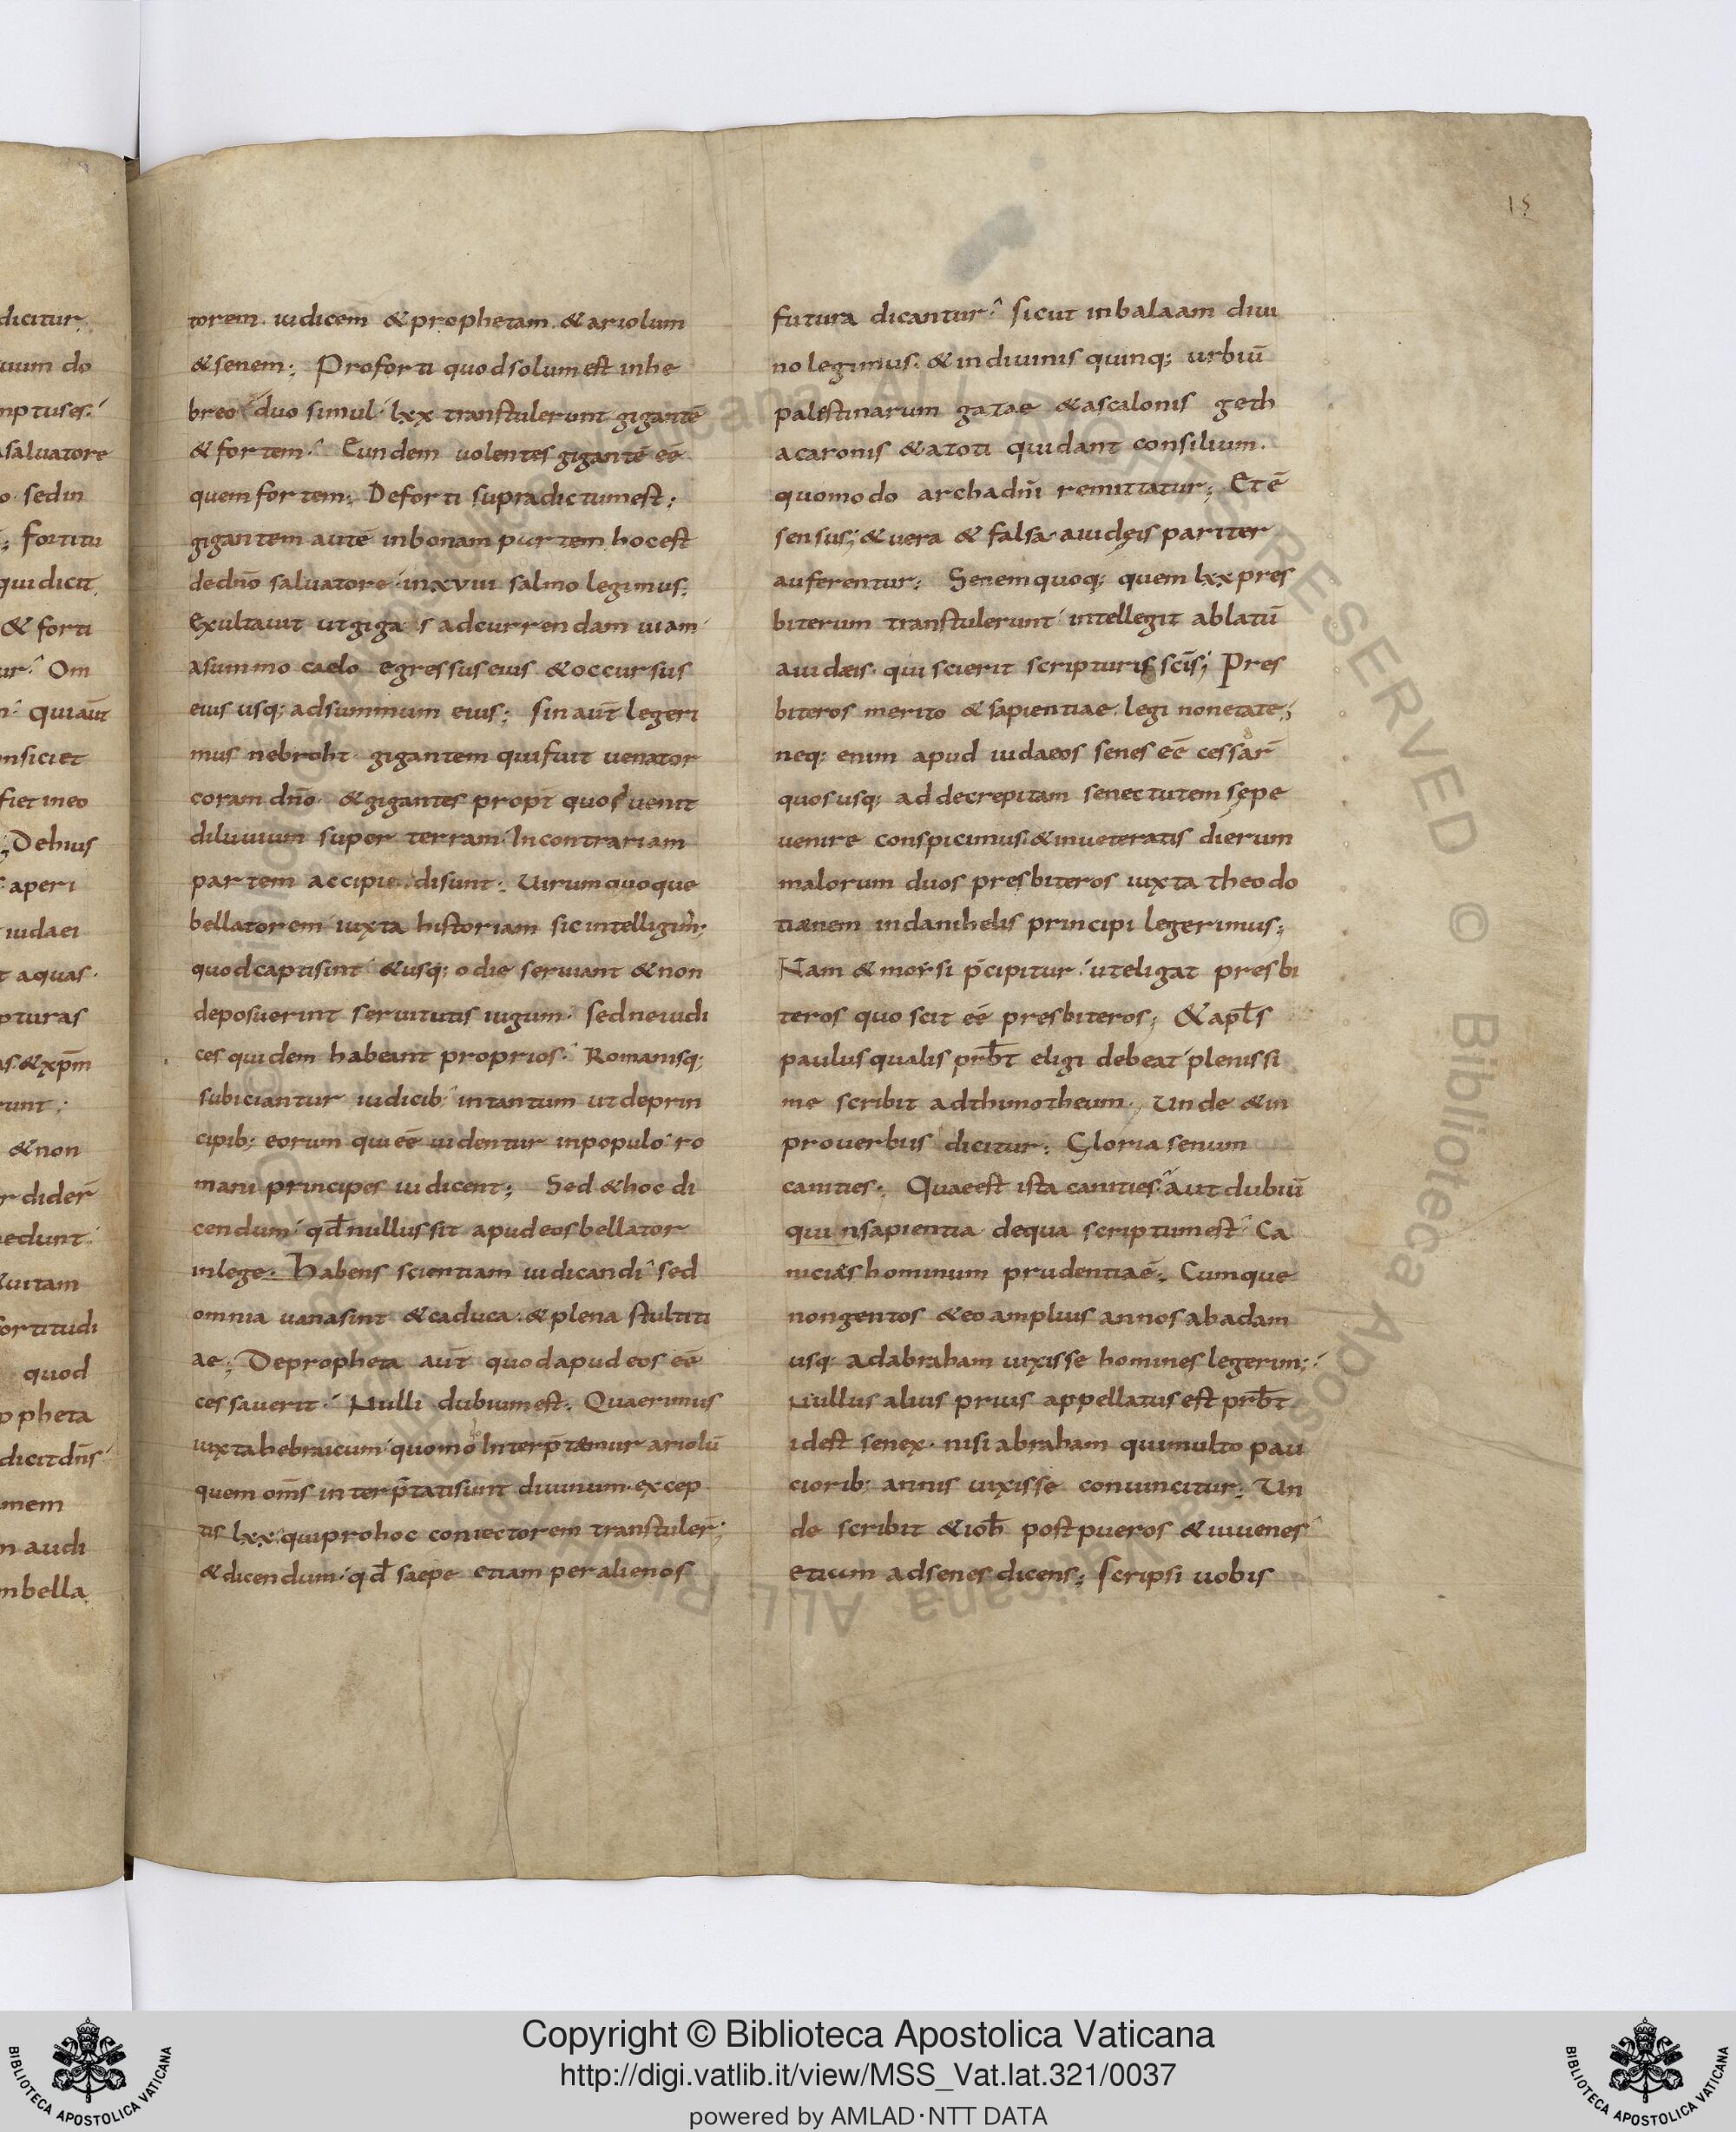 dicitur.
uum do
mptuses.
salvatore
o sed in
; fortitu
qui dicit.
& forti
ur. Om
n qui aūt
nsiciet
fiet in eo
; Dehius
aperi
iudaei
t aquas.
pturas
as. & xpm̄
runt;
& non
r dider̄
edunt.
uitam
fortitudi
quod
ppheta
dicit dn̄s
mem
n audi
n bella.
torem. iudicem & prophetam. & ariolum
& senem; Pro forti quod solum est in he
breo duo simul lxx transtulerunt gigantē
& fortem. Eundem uolentes gigantē eē
quem fortem; De forti supra dictum est;
gigantem autē in bonam partem. hoc est
de dn̄o salvatore in xviii salmo legimus;
Exultauit ut gigas ad currendam uiam
a summo caelo egressus eius & occursus
eius usq; ad summum eius; sin aūt legeri
mus nebroht gigantem qui fuit uenator
coram dn̄o & gigantes propt̄ quos uenit
diluuium super terram. In contrariam
partem accipiendi sunt. Uirum quoque
bellatorem iuxta historiam sic intelligim;
quod capti sint & usq; odie seruiant & non
deposuerint seruitutis iugum. sed ne iudi
ces quidem habeant proprios. Romanisq;
subiciantur iudicib; in tantum ut de prin
cipib; eorum qui eē uidentur in populo ro
mani principes iudicent; Sed & hoc di
cendum qđ nullus sit apud eos bellator
in lege. Habens scientiam iudicandi sed
omnia uana sint & caduca. & plena stultiti
ae; De propheta aūt quod apud eos eē
cessauerit. Nulli dubium est. Quaerimus
iuxta hebraicum quomo Interp̄tamur ariolū
quem om̄s interp̄tati sunt diuinum. excep
tis lxx. qui pro hoc coniectorem transtuler̄;
& dicendum. qđ saepe etiam per alienos
15
futura dicantur. sicut in balaam diui
no legimus. & in diuinis quinq; urbiū
palestinarum gatae & ascalonis geth
acaronis & atoti qui dant consilium.
quomodo archa dn̄i remittatur; Et ē
sensus; & uera & falsa a iudęis pariter
auferentur; Senem quoq; quem lxx pres
biterum transtulerunt intellegit ablatū
a iudæis. qui scierit scripturis sc̄is; Pres
biteros merito & sapientiae legi non etate;
neq; enim apud iudaeos senes eē cessar̄
quos usq; ad decrepitam senectutem sępe
uenire conspicimus. & inueteratis dierum
malorum duos presbiteros iuxta theodo
tianem in danihelis principi legerimus;
Nam & moysi p̄cipitur ut eligat presbi
teros quo scit eē presbiteros; & apl̄s
paulus qualis prb̄t eligi debeat plenissi
me scribit ad thimotheum. Unde & in
prouerbiis dicitur; Gloria senum
canities. Quae est ista canities. aut dubiū
qui nsapientia de qua scriptum est. Ca
nicias hominum prudentiaē; Cumque
nongentos & eo amplius annos ab adam
usq; ad abraham uixisse homines legerim;
Nullus alius prius appellatus est prb̄t
id est senex. nisi abraham qui multo pau
ciorib; annis uixisse conuincitur; Un
de scribit & ioh̄ post pueros & iuuenes
etium ad senes dicens; scripsi uobis
Copyright © Biblioteca Apostolica Vaticana
http://digi.vatlib.it/view/MSS_Vat.lat.321/0037
powered by AMLAD·NTT DATA
BIBLIOTECA APOSTOLICA VATICANA
BIBLIOTECA APOSTOLICA VATICANA